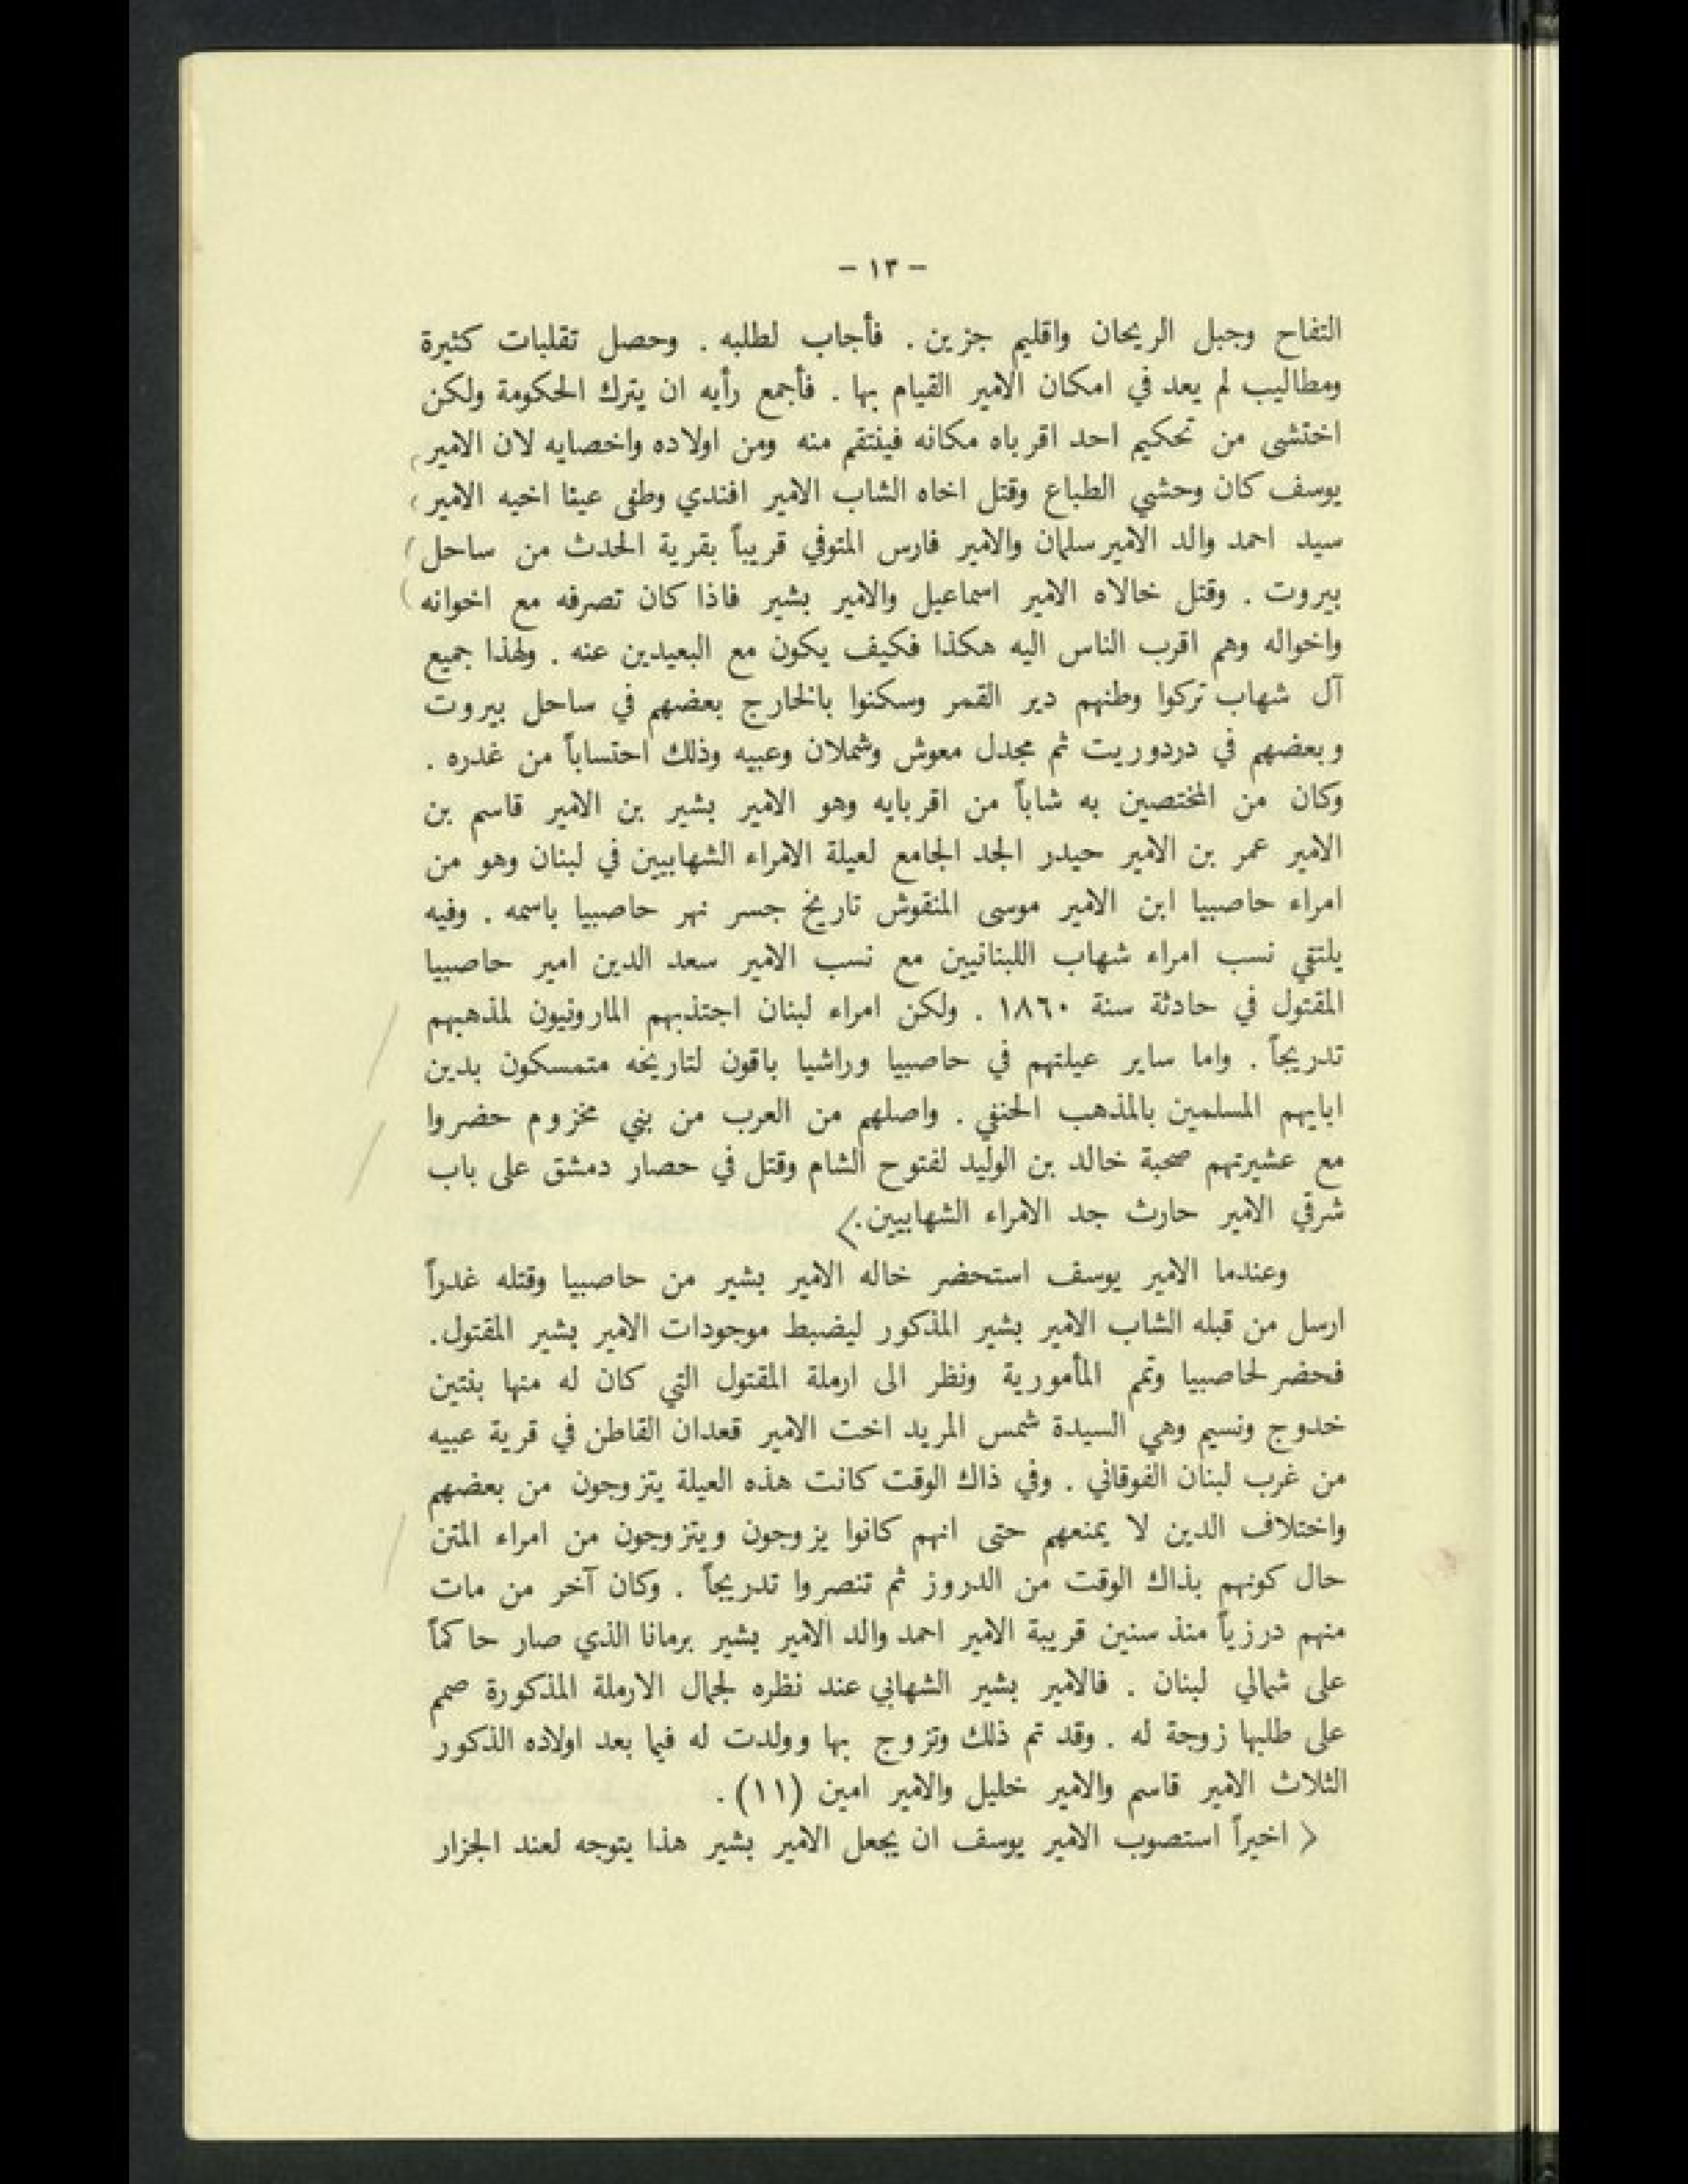 – ١٣ –
التفاح وجبل الريحان واقليم جزين . فأجاب لطلبه . وحصل تقلبات كثيرة
ومطاليب لم يعد في امكان الامير القيام بها . فأجمع رأيه ان يترك الحكومة ولكن
اختشى من تحكيم احد اقرباه مكانه فينتقم منه ومن اولاده واخصايه لان الامير
يوسف كان وحشي الطباع وقتل اخاه الشاب الامير افندي وطفى عينا اخيه الامير
سيد احمد والد الامير سلمان والامير فارس المتوفي قريباً بقرية الحدث من ساحل
بيروت . وقتل خالاه الامير اسماعيل والامير بشير فاذا كان تصرفه مع اخوانه
واخواله وهم اقرب الناس اليه هكذا فكيف يكون مع البعيدين عنه . ولهذا جميع
آل شهاب تركوا وطنهم دير القمر وسكنوا بالخارج بعضهم في ساحل بيروت
وبعضهم في دردوريت ثم مجدل معوش وشملان وعبيه وذلك احتساباً من غدره .
وكان من المختصين به شاباً من اقربايه وهو الامير بشير بن الامير قاسم بن
الامير عمر بن الامير حيدر الجد الجامع لعيلة الامراء الشهابيين في لبنان وهو من
امراء حاصبيا ابن الامير موسى المنقوش تاريخ جسر نهر حاصبيا باسمه . وفيه
يلتقي نسب امراء شهاب اللبنانيين مع نسب الامير سعد الدين امير حاصبيا
المقتول في حادثة سنة ١٨٦٠ . ولكن امراء لبنان اجتذبهم المارونيون لمذهبهم
تدريجاً . واما ساير عيلتهم في حاصبيا وراشيا باقون لتاريخه متمسكون بدين
ابايهم المسلمين بالمذهب الحنفي . واصلهم من العرب من بني مخزوم حضروا
مع عشيرتهم صحبة خالد بن الوليد لفتوح الشام وقتل في حصار دمشق على باب
شرقي الامير حارث جد الامراء الشهابيين .
وعندما الامير يوسف استحضر خاله الامير بشير من حاصبيا وقتله غدراً
ارسل من قبله الشاب الامير بشير المذكور ليضبط موجودات الامير بشير المقتول.
فحضر لحاصبيا وتمم المأمورية ونظر الى ارملة المقتول التي كان له منها بنتين
خدوج ونسيم وهي السيدة شمس المريد اخت الامير قعدان القاطن في قرية عبيه
من غرب لبنان الفوقاني . وفي ذاك الوقت كانت هذه العيلة يتزوجون من بعضهم
واختلاف الدين لا يمنعهم حتى انهم كانوا يزوجون ويتزوجون من امراء المتن
حال كونهم بذاك الوقت من الدروز ثم تنصروا تدريجاً . وكان آخر من مات
منهم درزياً منذ سنين قريبة الامير احمد والد الامير بشير برمانا الذي صار حاكماً
على شمالي لبنان . فالامير بشير الشهابي عند نظره لجمال الارملة المذكورة صمم
على طلبها زوجة له . وقد تم ذلك وتزوج بها وولدت له فيما بعد اولاده الذكور
الثلاث الامير قاسم والامير خليل والامير امين (١١) .
اخيراً استصوب الامير يوسف ان يجعل الامير بشير هذا يتوجه لعند الجزار